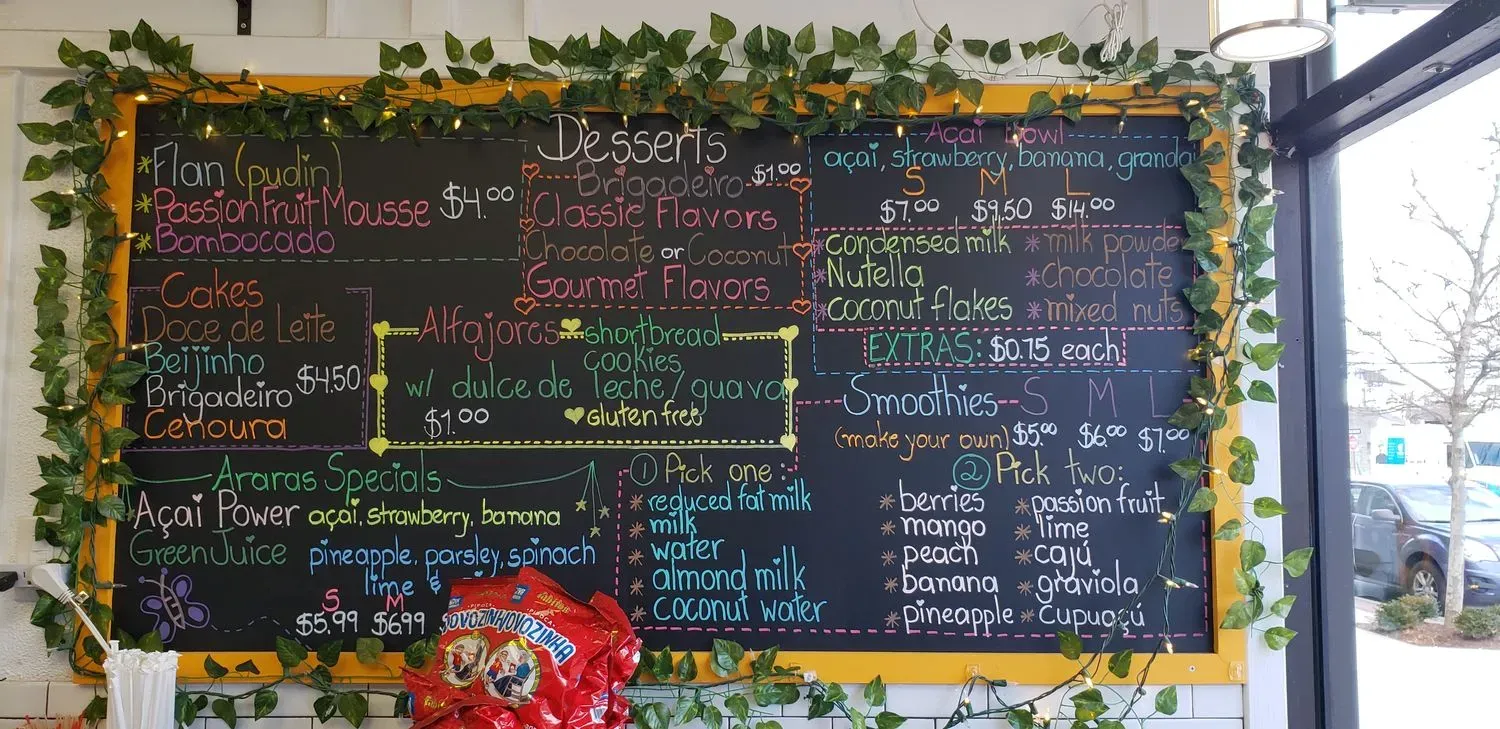 *Flan (pudin)
*Passion Fruit Mousse
*Bombocado
$4.00
Desserts
Brigadeiro $1.00
Classic Flavors
Chocolate or Coconut
Gourmet Flavors
Cakes
Doce de Leite
Beijinho
Brigadeiro
Cenoura
$4.50
Alfajores shortbread
cookies
w/ dulce de leche / guava
$1.00 gluten free
Araras Specials
Açai Power açai, strawberry, banana
Green Juice pineapple, parsley, spinach
lime &
S M
$5.99 $6.99
Acai Bowl
açai, strawberry, banana,
S M L
$7.00 $9.50 $14.00
*condensed milk *milk powder
*Nutella *chocolate
*coconut flakes *mixed nuts
EXTRAS: $0.75 each
Smoothies S M L
(make your own) $5.00 $6.00 $7.00
1 Pick one:
*reduced fat milk
*milk
*water
*almond milk
*coconut water
2 Pick two:
*berries *passion fruit
*mango *lime
*peach *cajú
*banana *graviola
*pineapple *cupuaçú
VOVOZINHA